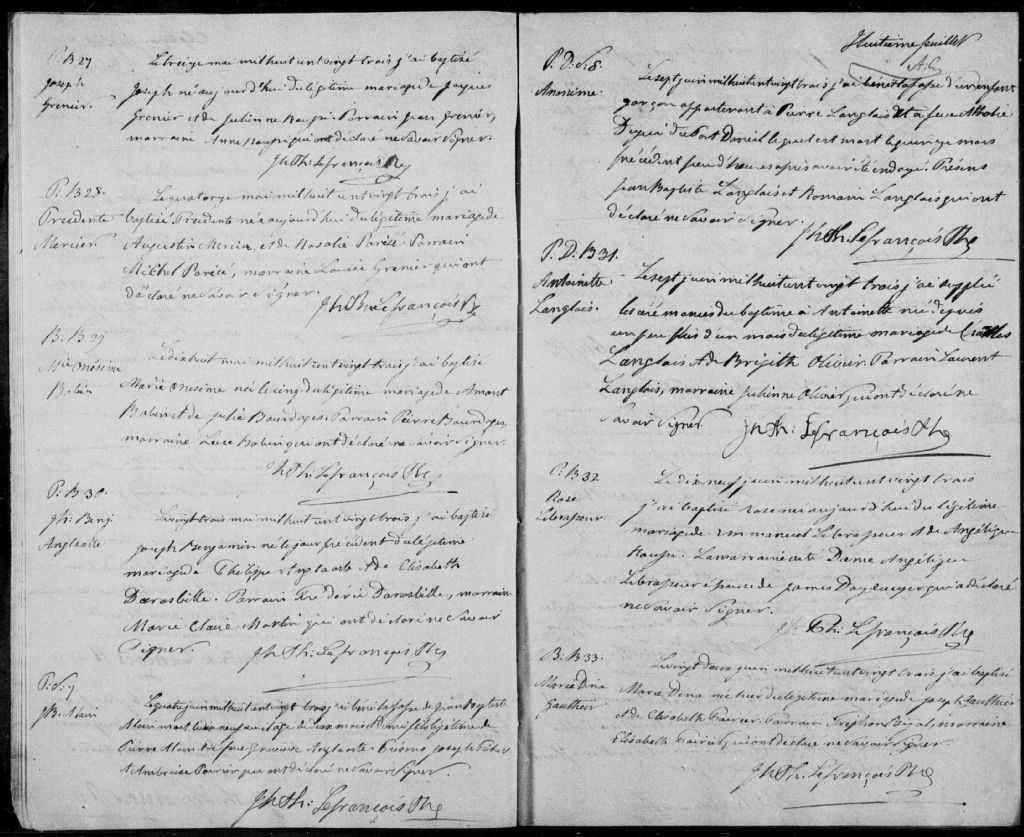 P. B 27
Joseph
Grenier.
Le treize mai mil huit cent vingt trois j'ai baptisé
Joseph né aujourd'hui du légitime mariage de Jacques
Grenier et de Julienne Roupi. Parrain Jean Grenier,
marraine Anne Roupi qui ont déclaré ne savoir signer.
Jh Th: Lefrançois Ptre
P: B 28.
Prudente
Mercier
Le quatorze mai mil huit cent vingt trois j'ai
baptisé Prudente née aujourd'hui du légitime mariage de
Augustin Mercier, et de Rosalie Parisé. Parrain
Michel Parisé, marraine Louise Grenier qui ont
déclaré ne savoir signer.
Jh Th Lefrançois Ptre
B. B 29
Mie Onésime
Babin
Le dix huit mai mil huit cent vingt trois, j'ai baptisé
Marie Onésime née le cinq du légitime mariage de Amant
Babin et de Julie Bourdages. Parrain Pierre Bourdages,
marraine Luce Babin qui ont déclaré ne savoir signer.
Jh Th: Lefrançois Ptre
P: B 30.
Jh: Benj:
Anglaarte
Le vingt trois mai mil huit cent vingt trois, j'ai baptisé
Joseph Benjamin né le jour précédent du légitime
mariage de Philippe Anglaarte et de Elisabeth
Darosbille. Parrain Frédéric Darosbille, marraine
Marie Claire Martin qui ont déclaré ne savoir
signer. Jh Th: Lefrançois Ptre
P: S. 7.
JB. Alain
Le quatre juin mil huit cent vingt trois, j'ai béni la fosse de Jean Baptiste
Alain mort à l'age de deux mois et demi fils légitime de
Pierre Alain et de Anglaarte. Présens Joseph
et Ambroise Poirier qui ont déclaré ne savoir signer.
Jh Th: Lefrançois Ptre
Huitième feuillet
P. D. S. 8.
Anonime.
Le sept juin mil huit cent vingt trois j'ai béni la fosse d'un enfant
garçon appartenant à Pierre Langlais et à
du Port Daniel lequel est mort le quinze mai
précédent peu d'heures après avoir été ondoyé. Présens
Jean Baptiste Langlais et Romain Langlais qui ont
déclaré ne savoir signer.
Jh Th: Lefrançois Ptre
P. D. B 31.
Antoinette
Langlais.
Le sept juin mil huit cent vingt trois j'ai supplée
les cérémonies du baptême à Antoinette née depuis
un peu plus d'un mois du légitime mariage de Charles
Langlais et de Brigith Olivier. Parrain Laurent
Langlais, marraine Julienne Olivier, qui ont déclaré ne
savoir signer. Jh Th: Lefrançois Ptre
P: B 32
Rose
Lebrasseur
Le dix neuf juin mil huit cent vingt trois
j'ai baptisé Rose née aujourd'hui du légitime
mariage de Emmanuel Lebrasseur et de Angélique
Roupi. La marraine a été Dame Angélique
Lebrasseur épouse de James Day écuyer qui a déclaré
ne savoir signer.
Jh Th: Lefrançois Ptre
B: B 33.
Marie Dina
Gauthier
Le vingt deux juin mil huit cent vingt trois, j'ai baptisé
Marie Dina née hier du légitime mariage de Joseph Gauthier
et de Elisabeth Poirier. Parrain marraine
Elisabeth Poirier qui ont déclaré ne savoir signer.
Jh Th: Lefrançois Ptre